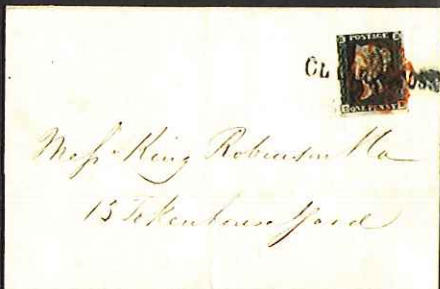 POSTAGE
ONE PENNY
Messrs King Robinson & Co
13 Tokenhouse Yard